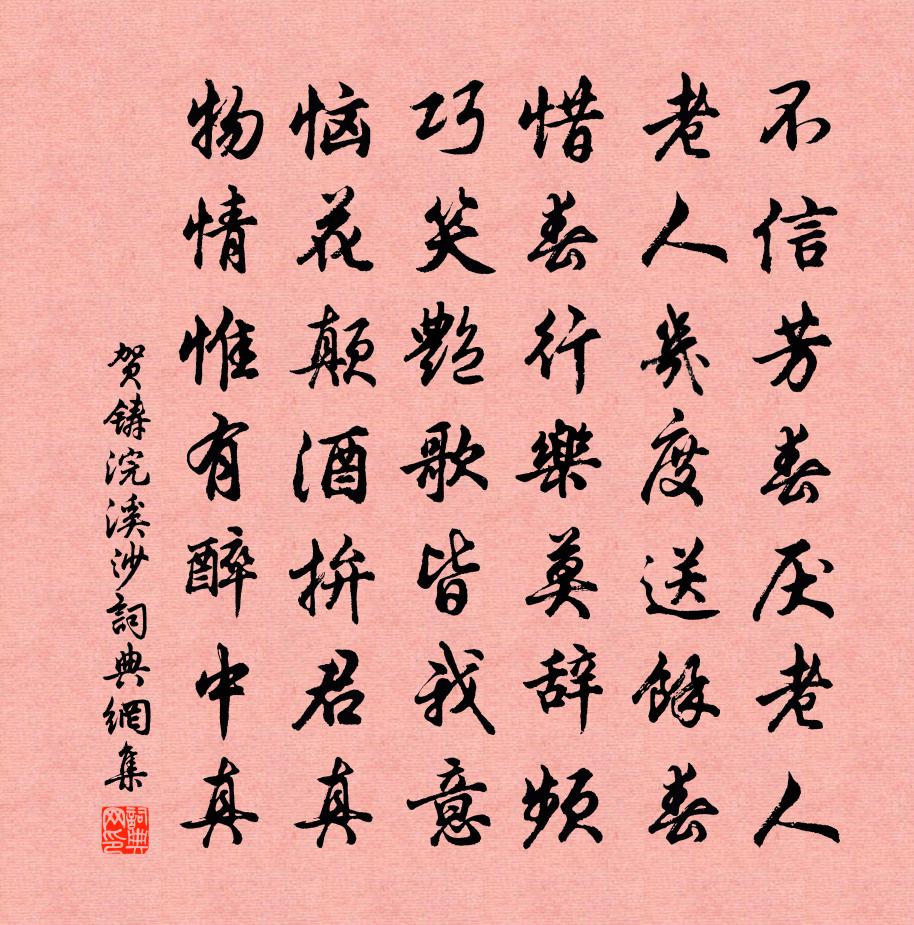 不信芳春厌老人
老人幾度送餘春
惜春行樂莫辞頻
巧笑艷歌皆我意
恼花顛酒拚君真
物情惟有醉中真
贺鑄浣溪沙詞典網集
詞典网印